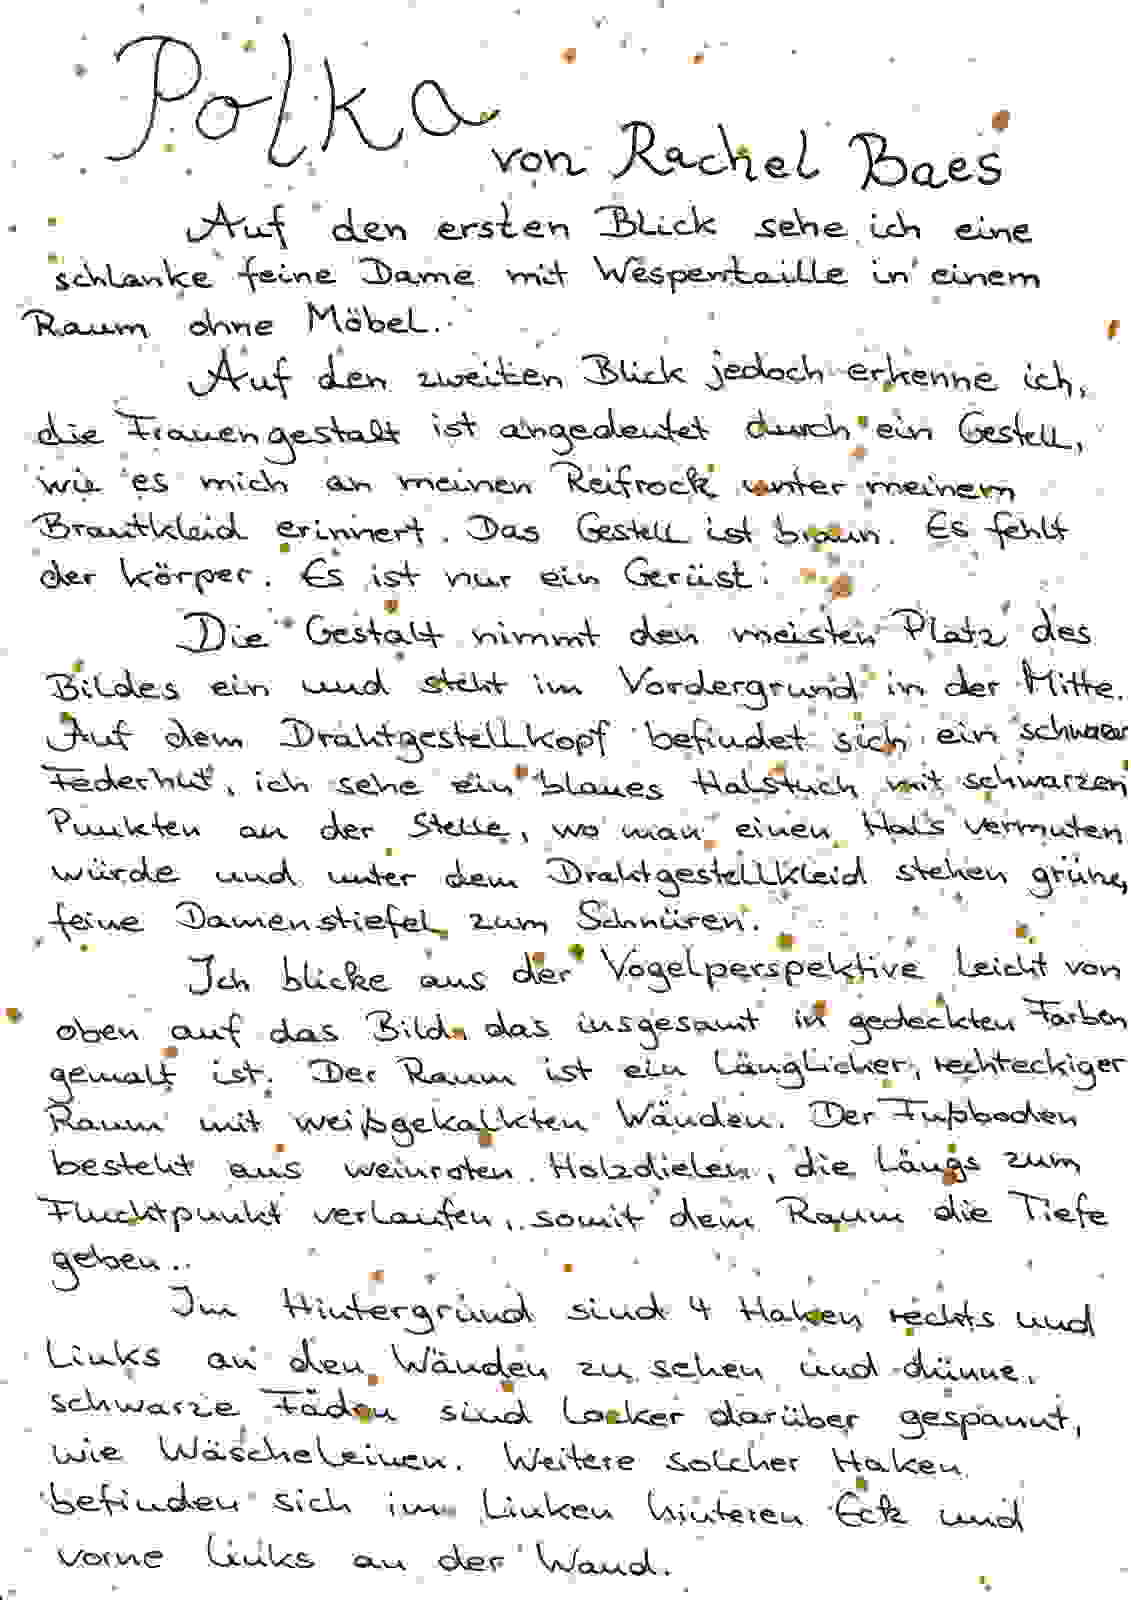 Polka
von Rachel Baes
Auf den ersten Blick sehe ich eine
schlanke feine Dame mit Wespentaille in einem
Raum ohne Möbel.
Auf den zweiten Blick jedoch erkenne ich,
die Frauengestalt ist angedeutet durch ein Gestell,
wie es mich an meinen Reifrock unter meinem
Brautkleid erinnert. Das Gestell ist braun. Es fehlt
der Körper. Es ist nur ein Gerüst.
Die Gestalt nimmt den meisten Platz des
Bildes ein und steht im Vordergrund in der Mitte.
Auf dem Drahtgestellkopf befindet sich ein schwarzer
Federhut, ich sehe ein blaues Halstuch mit schwarzen
Punkten an der Stelle, wo man einen Hals vermuten
würde und unter dem Drahtgestellkleid stehen grüne,
feine Damenstiefel zum Schnüren.
Ich blicke aus der Vogelperspektive leicht von
oben auf das Bild, das insgesamt in gedeckten Farben
gemalt ist. Der Raum ist ein länglicher, rechteckiger
Raum mit weißgekalkten Wänden. Der Fußboden
besteht aus weinroten Holzdielen, die längs zum
Fluchtpunkt verlaufen, somit dem Raum die Tiefe
geben.
Im Hintergrund sind 4 Haken rechts und
links an den Wänden zu sehen und dünne,
schwarze Fäden sind locker darüber gespannt,
wie Wäscheleinen. Weitere solcher Haken
befinden sich im linken hinteren Eck und
vorne links an der Wand.